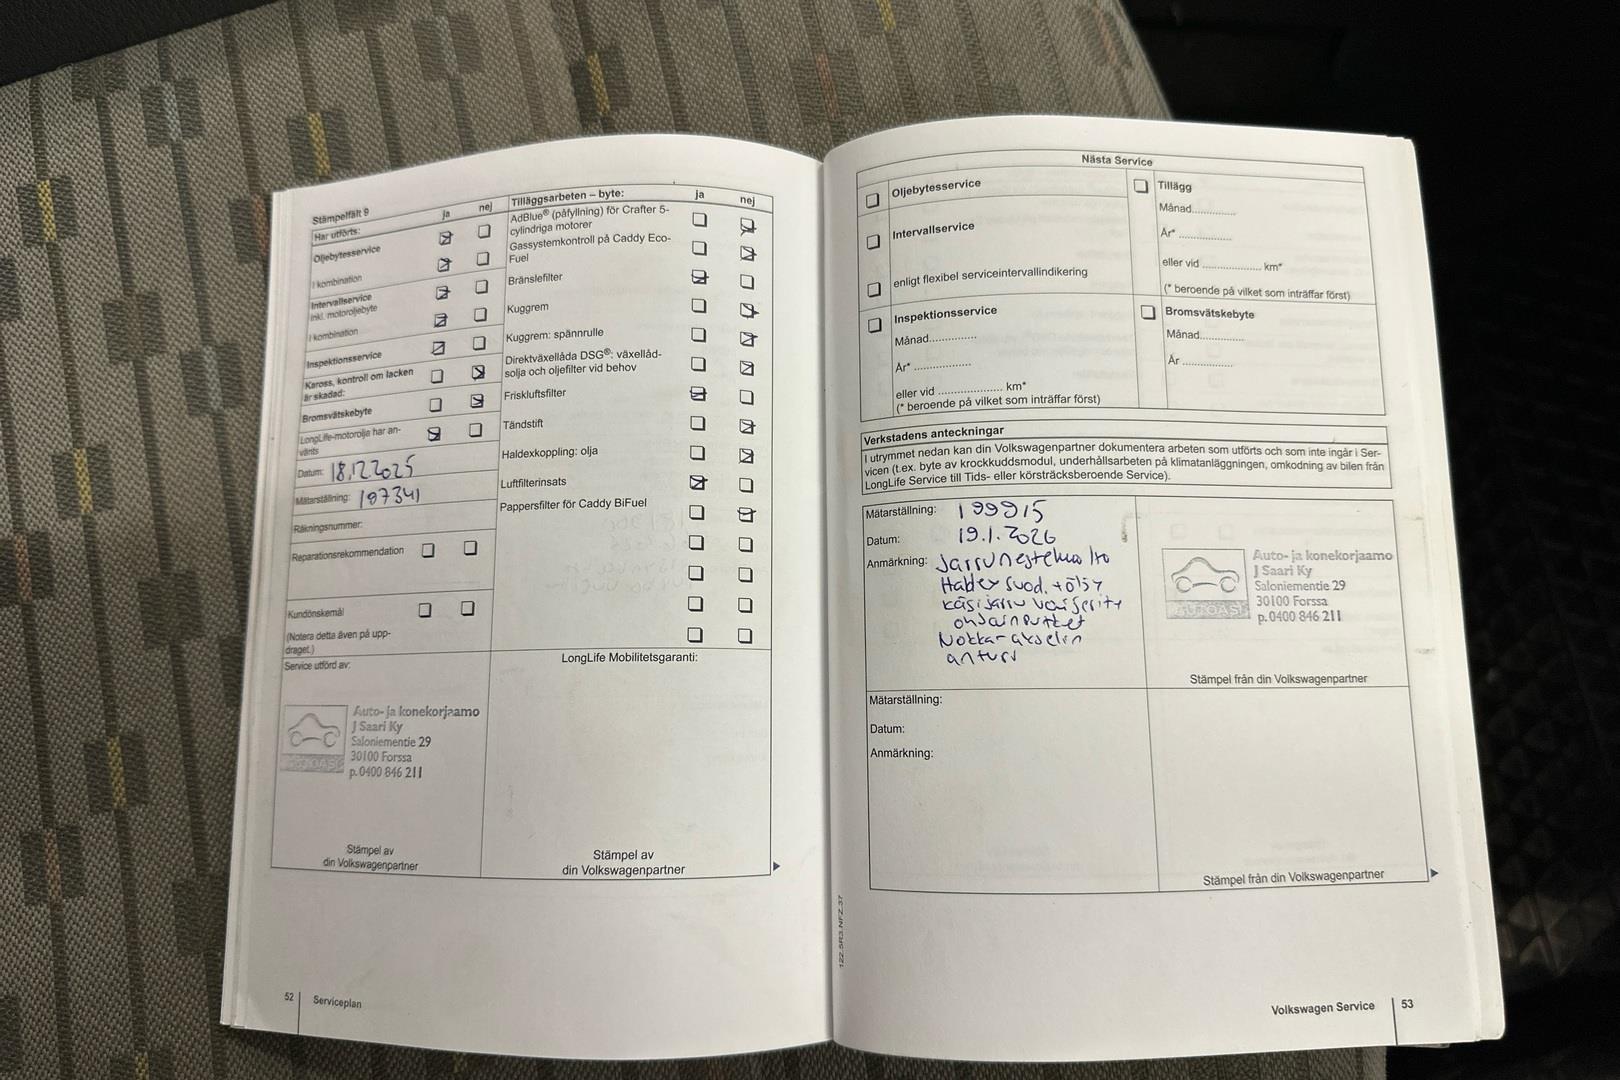 Stämpelfält 9
ja
nej
Har utförts:
Oljebytesservice
I kombination
Intervallservice
inkl. motoroljebyte
I kombination
Inspektionsservice
Kaross, kontroll om lacken
är skadad:
Bromsvätskebyte
LongLife-motorolja har an-
vänts
Datum: 18.12.2025
Mätarställning: 197341
Räkningsnummer:
Reparationsrekommendation
Kundönskemål
(Notera detta även på upp-
draget.)
Service utförd av:
Auto- ja konekorjaamo
J Saari Ky
Saloniementie 29
30100 Forssa
p. 0400 846 211
AUTOASI
Stämpel av
din Volkswagenpartner
Tilläggsarbeten – byte:
ja
nej
AdBlue® (påfyllning) för Crafter 5-
cylindriga motorer
Gassystemkontroll på Caddy Eco-
Fuel
Bränslefilter
Kuggrem
Kuggrem: spännrulle
Direktväxellåda DSG®: växellåd-
solja och oljefilter vid behov
Friskluftsfilter
Tändstift
Haldexkoppling: olja
Luftfilterinsats
Pappersfilter för Caddy BiFuel
LongLife Mobilitetsgaranti:
Stämpel av
din Volkswagenpartner
52
Serviceplan
Nästa Service
Oljebytesservice
Intervallservice
enligt flexibel serviceintervallindikering
Inspektionsservice
Månad..............
År* .................
eller vid ................... km*
(* beroende på vilket som inträffar först)
Tillägg
Månad..............
År* ................
eller vid .................. km*
(* beroende på vilket som inträffar först)
Bromsvätskebyte
Månad..............
År ................
Verkstadens anteckningar
I utrymmet nedan kan din Volkswagenpartner dokumentera arbeten som utförts och som inte ingår i Ser-
vicen (t.ex. byte av krockkuddsmodul, underhållsarbeten på klimatanläggningen, omkodning av bilen från
LongLife Service till Tids- eller körsträcksberoende Service).
Mätarställning: 199915
Datum: 19.1.2026
Anmärkning: Jarrunesteen
Haldex suod. + öljy
käsijarru vaijerit +
ohjainputket
Nokka-akselin
anturi
Auto- ja konekorjaamo
J Saari Ky
Saloniementie 29
30100 Forssa
p. 0400 846 211
AUTOASI
Stämpel från din Volkswagenpartner
Mätarställning:
Datum:
Anmärkning:
Stämpel från din Volkswagenpartner
122.5R3.NFZ.37
Volkswagen Service
53